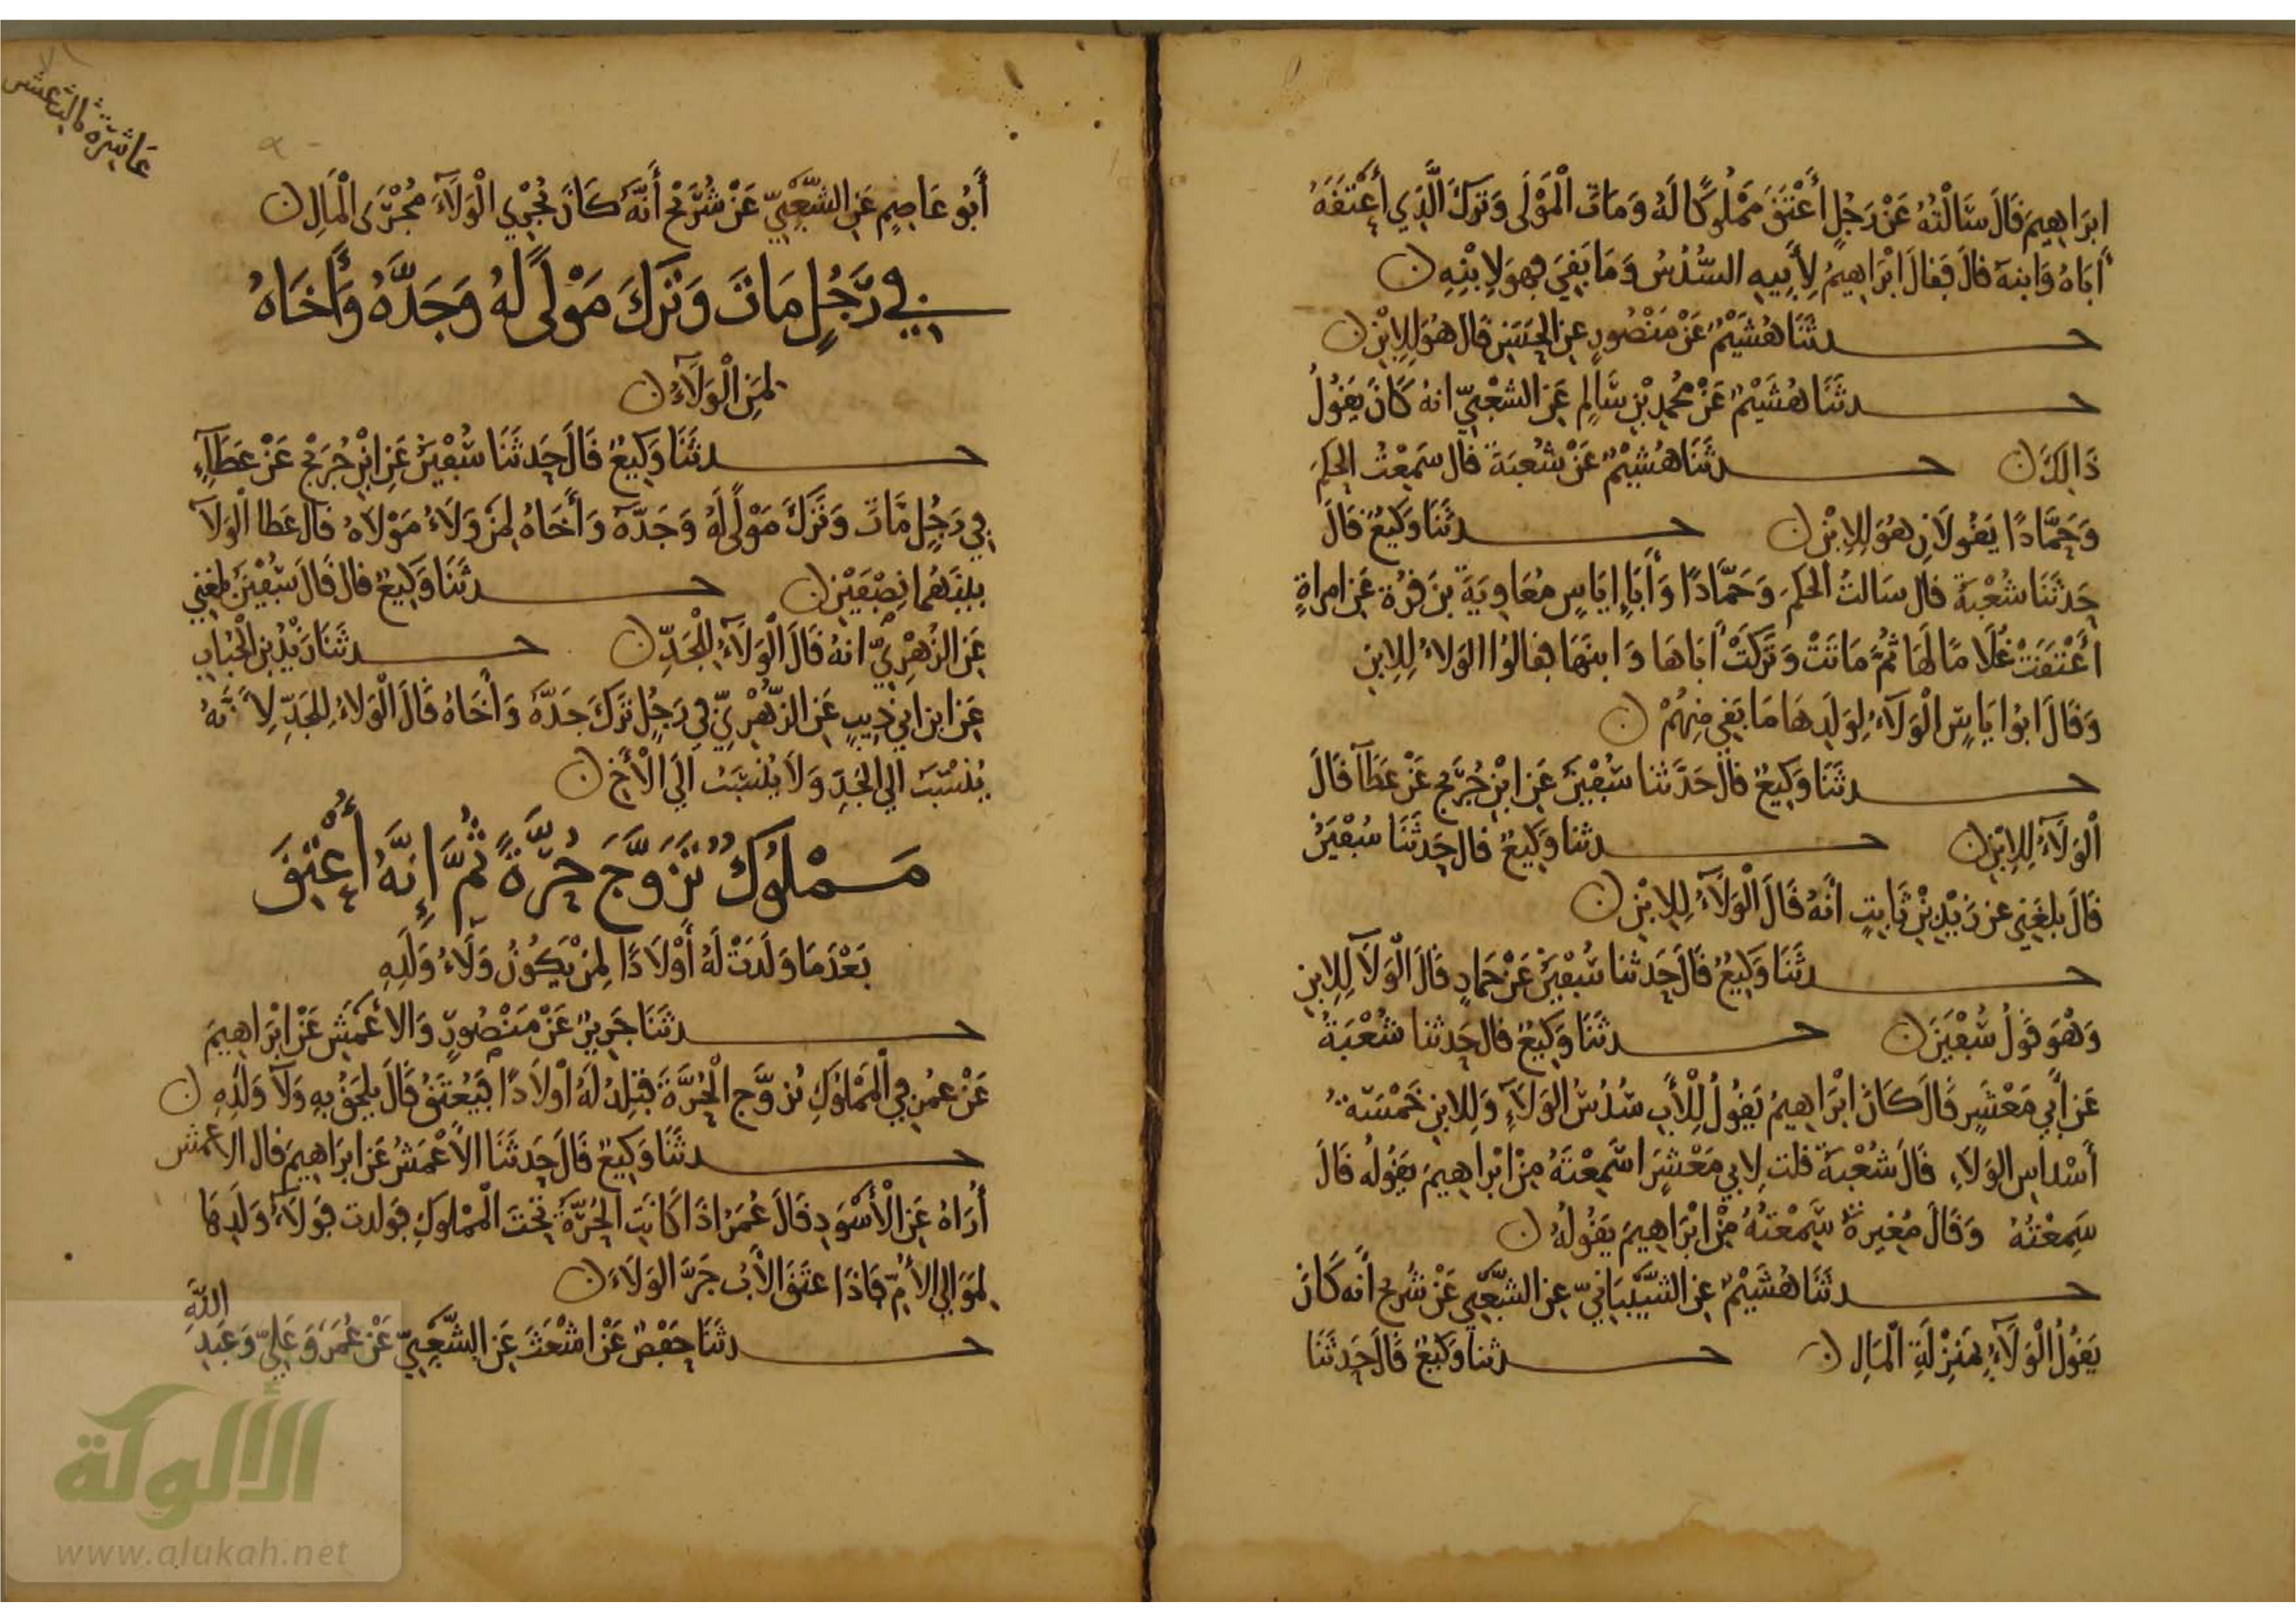 ابرَاهِيمَ قَالَ سَالْتُهُ عَنْ رَجُلٍ أَعْتَقَ مَمْلُوكًا لَهُ وَمَاتَ الْمَوْلَى وَتَرَكَ الَّذِي أَعْتَقَهُ
أَبَاهُ وَابنهَ قالَ فَقالَ ابْرَاهِيمُ لِأَبِيهِ السُّدُسُ وَمَا بَقِيَ فهوَ لِابْنِهِ
حدثَنَا هُشَيْمٌ عَنْ مَنْصُورٍ عنِ الحَسَنِ قالَ هُوَ لِلِابْنِ
حدثَنَا هُشَيْمٌ عَنْ مُحمدِ بْنِ سَالِمٍ عَنِ الشعْبِيِّ انهُ كَانَ يَقُولُ
ذَالِكَ حدثَنَا هُشَيْمٌ عَنْ شُعْبَةَ قال سَمِعْتُ الحكمَ
وَحَمَّادًا يَقُولَانِ هُوَ لِلِابْنِ حدثَنَا وَكِيعٌ قَالَ
حَدثَنَا شُعْبَةُ قال سَالتُ الحَكمَ وَحَمَّادًا وَأَبَا إيَاسٍ مُعَاوِيَةَ بنَ قرَّةَ عَنِ امراةٍ
اعْتَقَتْ غُلَامًا لَهَا ثُمَّ مَاتَتْ وَتَرَكَتْ أَبَاهَا وَابنَهَا فقالُوا الوَلاءُ لِلِابنِ
وَقَالَ ابُوا يَاسٍ الْوَلَاءُ لِوَلَدِهَا مَا بَقِيَ مِنْهُمْ
حدثَنَا وَكِيعٌ قالَ حَدَّثنا سُفْيَنُ عَنِ ابْنِ جُرَيْجٍ عَنْ عَطَآ قَالَ
الْوَلَاءُ لِلِابْنِ حدثنا وَكِيعٌ قال حَدثَنَا سُفْيَنُ
قَالَ بلغَنِي عن زَيْدِ بْنِ ثَابِتٍ انَّهُ قَالَ الْوَلَاءُ لِلِابْنِ
حدثَنَا وَكِيعٌ قَالَ حَدثنا سُفْيَنُ عَنْ حَمادٍ قَالَ الْوَلَآ لِلِابنِ
وَهْوَ قَوْلُ سُفْيَنَ حدثَنَا وَكِيعٌ قال حَدثنا شُعْبَةُ
عَن أَبِي مَعْشَرٍ قَالَ كَانَ ابْرَاهِيمُ يَقُولُ لِلْأَبِ سُدُسُ الوَلَآءِ وَلِلابنِ خَمْسَةُ
أَسْدَاسِ الوَلَاءِ قَالَ شُعْبَةُ قلت لِابي مَعْشَرٍ اسَمِعْتَهُ مِنْ ابْرَاهِيمَ يَقُولُه قَالَ
سَمِعْتُهُ وَقَالَ مُغِيرةُ سَمِعْتُهُ مِنْ ابْرَاهِيمَ يَقُولُهُ
حدثَنَا هُشَيْمٌ عنِ الشَّيْبَانِيِّ عنِ الشَّعْبِيِّ عَنْ شُرَيح أنه كَانَ
يَقُولُ الْوَلَآءُ بِمَنْزِلَةِ الْمَالِ حدثنا وَكِيعٌ قَالَ حَدثَنَا
عَاشِرَة ثالث عشر
أَبُو عَاصِمٍ عَنِ الشَّعْبِيِّ عَنْ شُرَيْحٍ أَنَّهُ كَانَ يُجْرِي الْوَلَآءَ مُجْرَى الْمَالِ
فِي رَجُلٍ مَاتَ وَتَرَكَ مَوْلًى لَهُ وَجَدَّهُ وَأَخَاهُ
لِمَنِ الْوَلَآءُ
حدثَنَا وَكِيعٌ قَالَ حَدثَنَا سُفْيَنُ عَنِ ابْنِ جُرَيْجٍ عَنْ عَطَآءٍ
فِي رَجُلٍ مَّاتَ وَتَرَكَ مَوْلًى لَهُ وَجَدَّهُ وَأَخَاهُ لِمَنْ وَلَاءُ مَوْلَاهُ قَال عَطا الْوَلَآ
بينَهُمَا نِصْفَيْنِ حدثَنَا وَكِيعٌ قال قَالَ سُفْيَنُ بلغَنِي
عَنِ الزُّهْرِيِّ انهُ قَالَ الْوَلَآءُ لِلْجَدِّ حدثَنَا زَيْدُ بن الْحُبَابِ
عَنِ ابن ابي ذِيبٍ عَنِ الزُّهْرِيِّ فِي رَجُلٍ تَرَكَ جَدَّهُ وَأخَاهُ قَالَ الْوَلَاءُ لِلجَدِّ لِأَنهُ
يُنْسَبُ الَى الجَدِّ وَلَا يُنْسَبُ الَى الْأَخِ
مَمْلُوكٌ تَزَوَّجَ حُرَّةً ثُمَّ إِنَّهُ أُعْتِقَ
بَعْدَ مَا وَلَدَتْ لَهُ أَوْلَادًا لِمَنْ يَكُونُ وَلَاءُ وَلَدِهِ
حدثَنَا جَرِيرٌ عَنْ مَنْصُورٍ وَالاعْمَشِ عَنْ ابْرَاهِيمَ
عَنْ عُمَرَ فِي الْمَمْلُوكِ تَزَوَّج الْحُرَّةَ فتلِدُ لَهُ اوْلَادًا فَيُعْتَقُ قَالَ يلحَقُ بِهِ وَلَآ وَلَدِهِ
حدثَنَا وَكِيعٌ قَالَ حَدثَنَا الْأعْمَشُ عَنِ ابرَاهِيمَ قال الاعمش
أُرَاهُ عَنِ الْأَسْوَدِ قَالَ عُمَرُ اذَا كَانَتِ الحُرَّةُ تَحْتَ الْمَمْلوكِ فولدت فَوَلَآءُ وَلَدِهَا
لِمَوَالِي الْأُمِّ فَاذَا عتَقَ الْأَبُ جَرَّ الوَلَاءَ
حدثَنَا حَفْصٌ عَنْ اشْعَثَ عَنِ الشَّعْبِيِّ عَنْ عُمَرَ وَعَلِيٍّ وَعَبدِ
اللَّهِ
الألوكة
www.alukah.net